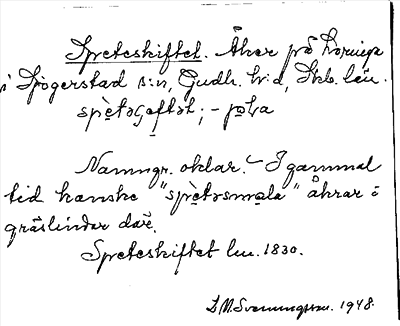 Speteskiftet. Åker på Horninge
i Spjögerstad s:n, Gudh. h:d, Skb. län.
spè̱təʃeftət; - på̱ka
Namngr. oklar. – I gammal
tid kanske "spè̱təsmåla" åkrar i
gräslindor där.
Speteskiftet lm. 1830.
L. M. Svenungsson. 1948.